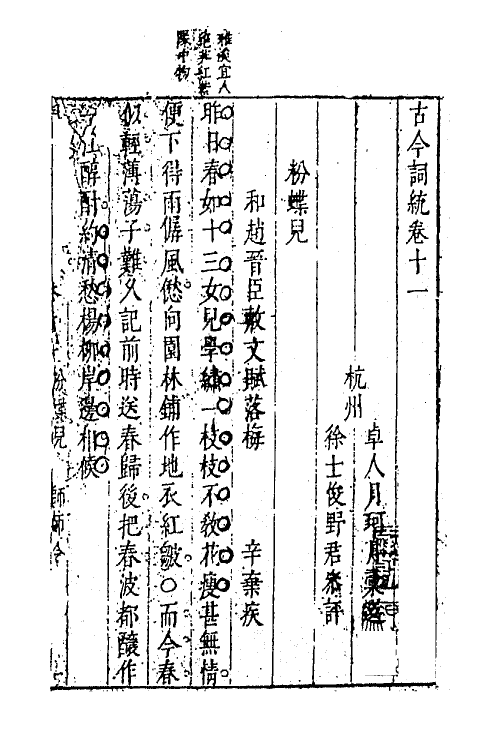 古今詞統卷十一
杭州
卓人月珂月彙選
徐士俊野君參評
粉蝶兒
和趙晉臣敷文賦落梅 辛棄疾
昨日春如十三女兒學繡一枝枝不敎花瘦甚無情
便下得雨僝風僽向園林鋪作地衣紅皺○而今春
似輕薄蕩子難久記前時送春歸後把春波都釀作
一江醇酎約清愁楊柳岸邊相候
粉蝶兒 師師令
雅淡宜人
絕非紅紫
隊中物